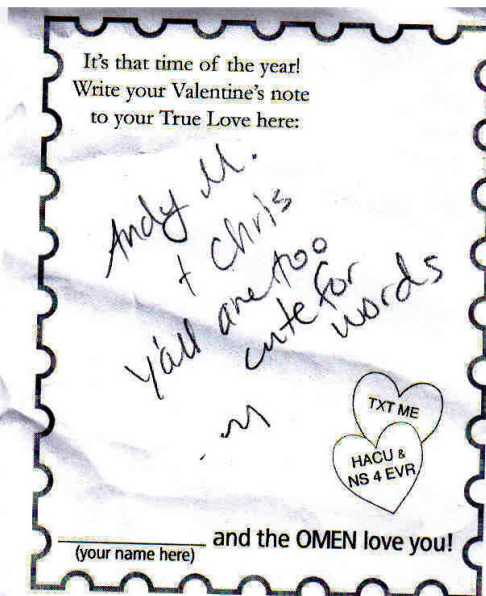 It's that time of the year!
Write your Valentine's note
to your True Love here:
Andy M.
+ Chris
y'all are too
cute for
words
TXT ME
HACU &
NS 4 EVR
and the OMEN love you!
(your name here)